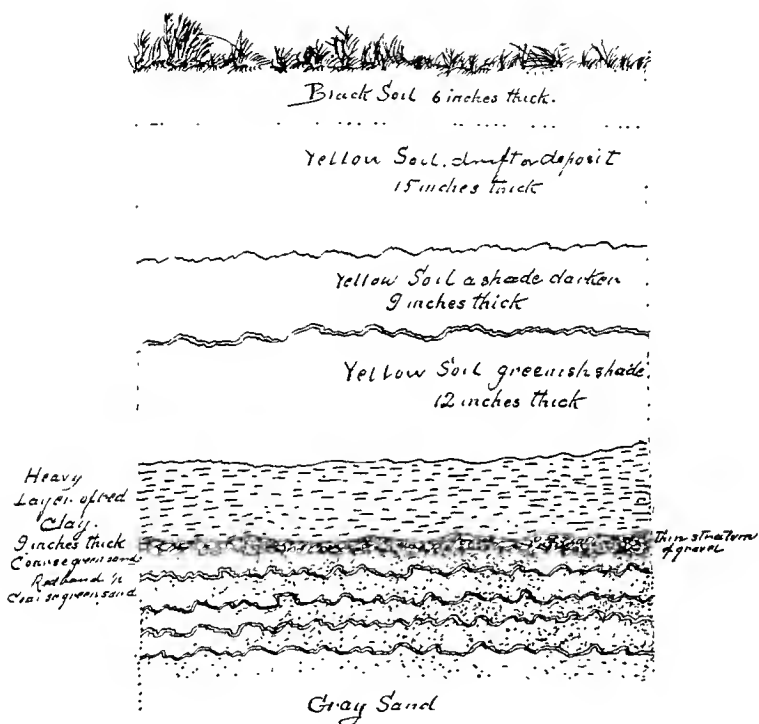 Black Soil 6 inches thick.
Yellow Soil. drift or deposit
15 inches thick
Yellow Soil a shade darker
9 inches thick
Yellow Soil greenish shade.
12 inches thick
Heavy
Layer of red
Clay.
9 inches thick
Coarse green sand
Red band
Coarse green sand
Thin stratum
of gravel
Gray Sand